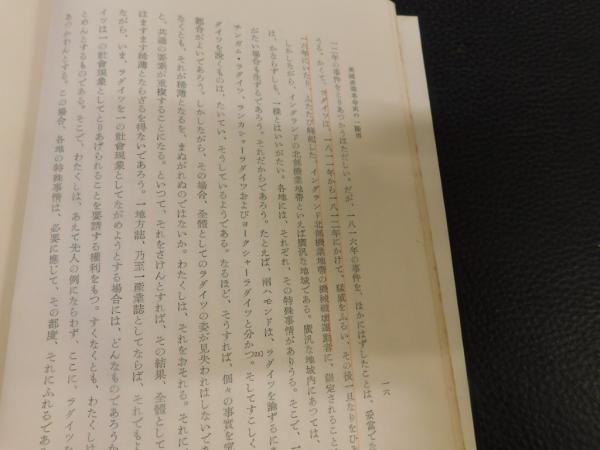 英國産業革命史の一齣面
一六
一二年の事件をとりあつかうはただしい。だが、一八一六年の事件を、ほかにはずしたことは、妥當でな
うち。かくて、ラダイツは、一八一一年から一八一二年にかけて、猛威をふるい、その後一旦なりをひそ
一六年にいたり、ふたたび蜂起した、イングランド北部機業地帶の機械破壞運動者に、限定されること
しかしながら、イングランドの北部機業地帶といえば廣汎な地域である。廣汎な地域内にあつては、
は、かならずしも、一樣とはいいがたい。各地には、それぞれ、その特殊事情がありうる。そこで、一
がたい場合も生ずるであろう。それだからであろう。たとえば、兩ハモンドは、ラダイツを論ずるにあ
チンガム・ラダイツ、ランカシャーラダイツおよびヨークシャーラダイツと分かつ。そしてすこしく
ダイツを說くものは、たいてい、そうしているようである。なるほど、そうすれば、個々の事實を究
都合がよいであろう。しかしながら、その場合、全體としてのラダイツの姿が見失われはしないであ
なくとも、それが稀薄となるを、まぬがれぬのではないか。わたくしは、それをおそれる。それに、
と、共通の要素が重複することになる。といつて、それをさけんとすれば、その結果、全體として
はますます稀薄とならざるを得ないであろう。一地方誌、乃至一產業誌としてならば、それでもよ
ながら、いま、ラダイツを一の社會現象としてながめようとする場合には、どんなものであろうか
イツは一の社會現象としてとりあげられることを要請する權利をもつ。すくなくとも、わたくしは
とめんとするものである。そこで、わたくしは、あえて先人の例にならわず、ここに、ラダイツを
あつかわんとする。この場合、各地の特殊事情は、必要に應じて、その都度、それにふれるであ